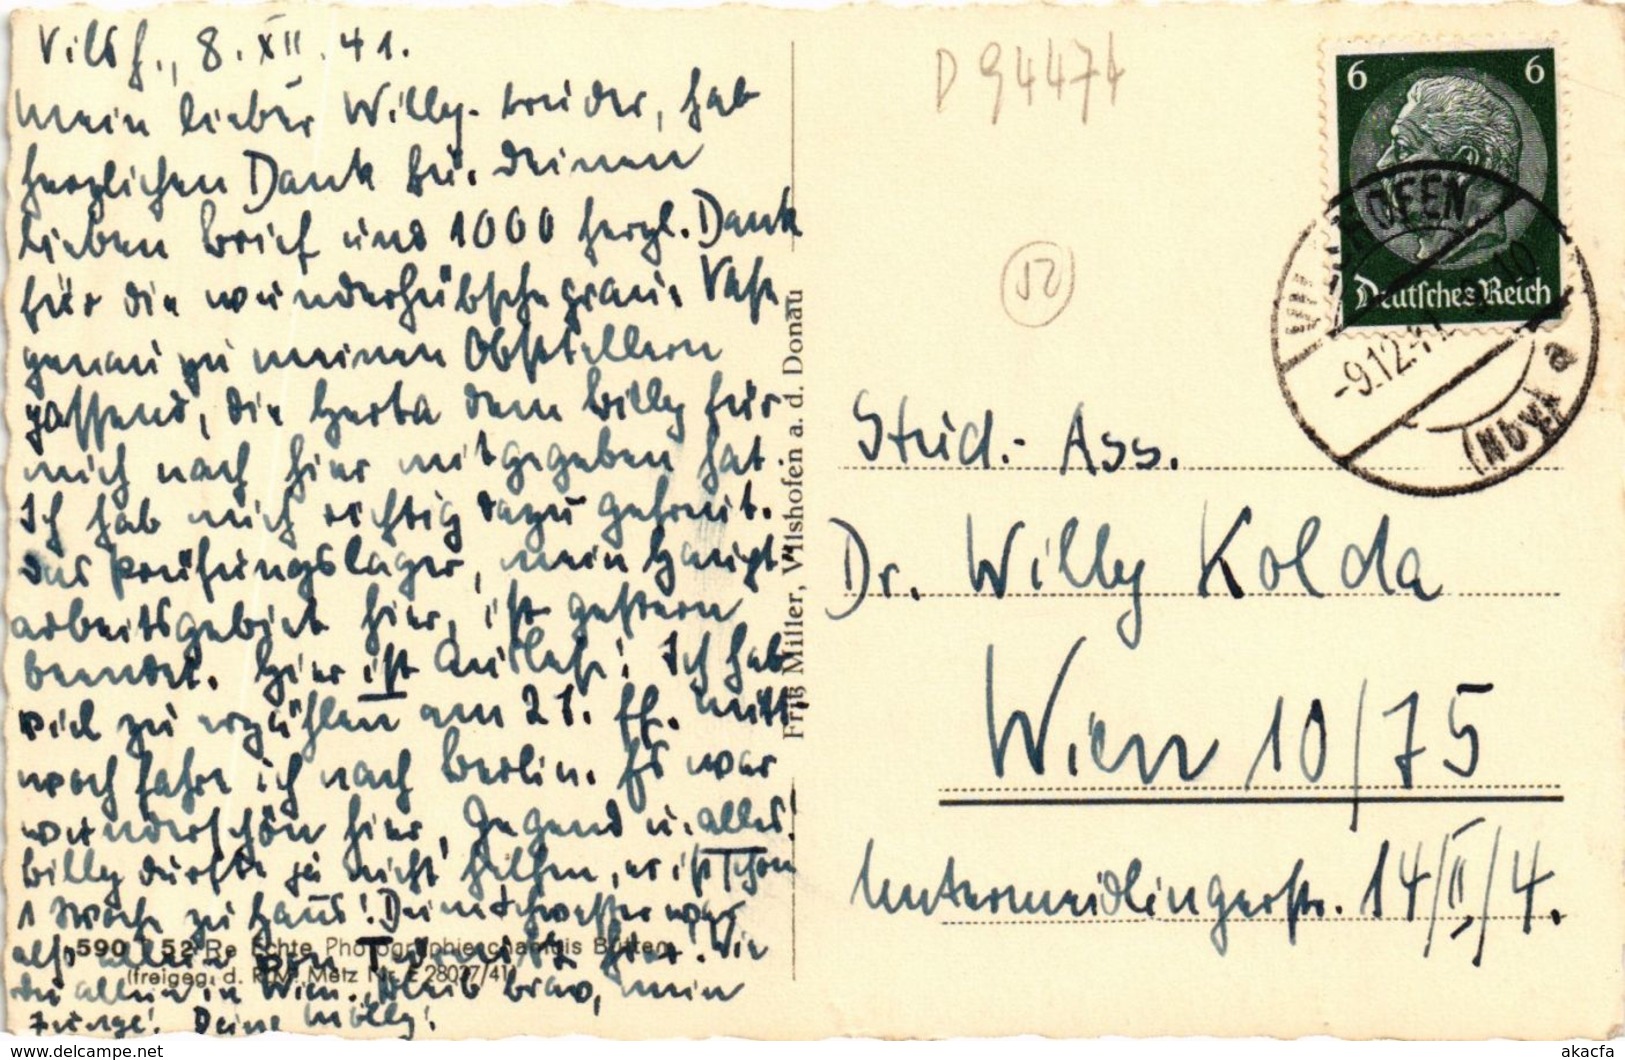 Vilsh., 8. XII. 41.
Mein lieber Willy-bruder, hab
herzlichen Dank für deinen
lieben Brief und 1000 herzl. Dank
für die wunderhübsche graue Vase
genau zu meinen Obsttellern
passend, die Herta dem Willy für
mich nach hier mitgegeben hat
Ich hab mich richtig dazu gefreut.
Das Prüfungslager, mein Haupt-
arbeitsgebiet hier, ist gestern
beendet. Hier ist Auslese! Ich hab
viel zu erzählen am 21. ff. Mitt-
woch fahre ich nach Berlin. Es war
wunderschön hier, Gegend u. alles!
Willy durfte ja nicht helfen, er ist schon
1 Woche zu Haus! Deine Schwester war
also allein hier! Wie
du allein in Wien. Bleib brav, mein
Junge! Deine Molly!
590 52 Re Echte Photographie-chamois Bütten
(freigeg. d. R.L.M. Metz Nr. E 28027/41)
Friß Miller, Vilshofen a. d. Donau
D 94474
52
6 6
Deutsches Reich
VILSHOFEN
-9.12.41 10
a
(Nby)
Stud.- Ass.
Dr. Willy Kolda
Wien 10/75
Untermeidlingerstr. 14/II/4.
akacfa